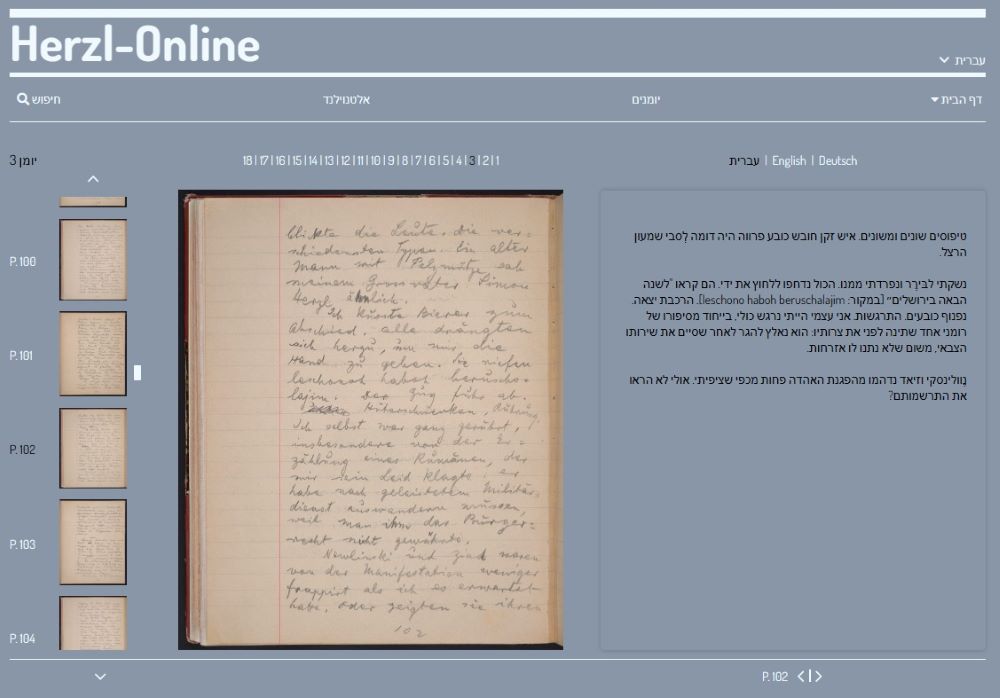 Herzl-Online
עברית
דף הבית
יומנים
אלטנוילנד
חיפוש
יומן 3
18|17|16|15|14|13|12|11|10|9|8|7|6|5|4|3|2|1
עברית | English | Deutsch
P.100
P.101
P.102
P.103
P.104
blickte die Leute. Die ver=
schiedensten Typen. Ein alter
Mann mit Pelzmütze sah
meinem Grossvater Simon
Herzl ähnlich.
Ich küsste Bierer zum
Abschied. alle drängten
sich herzu, um mir die
Hand zu geben. Sie riefen
leschonoh haboh beruscho-
lajim. Der Zug fuhr ab.
Hüteschwenken, Rührung.
Ich selbst war ganz gerührt,
insbesondere von der Er=
zählung eines Rumänen, der
mir sein Leid klagte: er
habe nach geleistetem Militär-
dienst auswandern müssen,
weil man ihm das Bürger=
recht nicht gewährte.
Newlinski und Ziad waren
von der Manifestation weniger
frappirt als ich es erwartet
habe, oder zeigten sie ihren
102
טיפוסים שונים ומשונים. איש זקן חובש כובע פרווה היה דומה לַסבי שמעון
הרצל.
נשקתי לבירֶר ונפרדתי ממנו. הכול נדחפו ללחוץ את ידי. הם קראו "לשנה
הבאה בירושלים" [במקור: leschono haboh beruschalajim]. הרכבת יצאה.
נפנוף כובעים. התרגשות. אני עצמי הייתי נרגש כולי, בייחוד מסיפורו של
רומני אחד שתינה לפני את צרותיו: הוא נאלץ להגר לאחר שסיים את שירותו
הצבאי, משום שלא נתנו לו אזרחות.
נֶווֹלינסקי וזיאד נדהמו מהפגנת האהדה פחות מכפי שציפיתי. אולי לא הראו
את התרשמותם?
P. 102